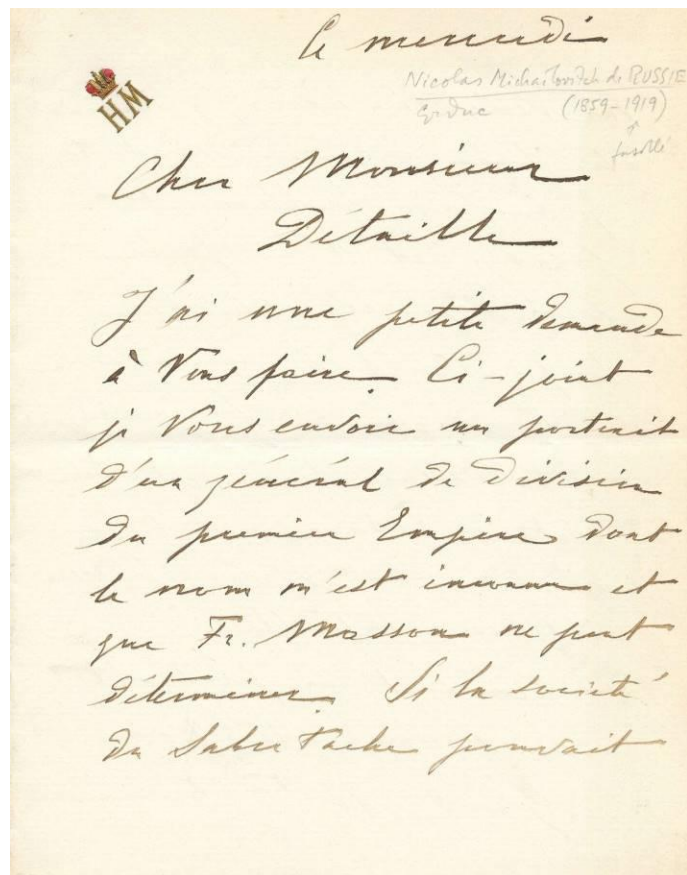 Ce mercredi
HM
Nicolas Michaïlovitch de RUSSIE
Gr duc (1859-1919)
fusillé
Cher Monsieur
Détaille
J'ai une petite demande
à Vous faire. Ci-joint
je Vous envoie un portrait
d'un général de division
du premier Empire dont
le nom m'est inconnu et
que Fr. Masson ne peut
déterminer. Si la société
du Sabre tache pouvait